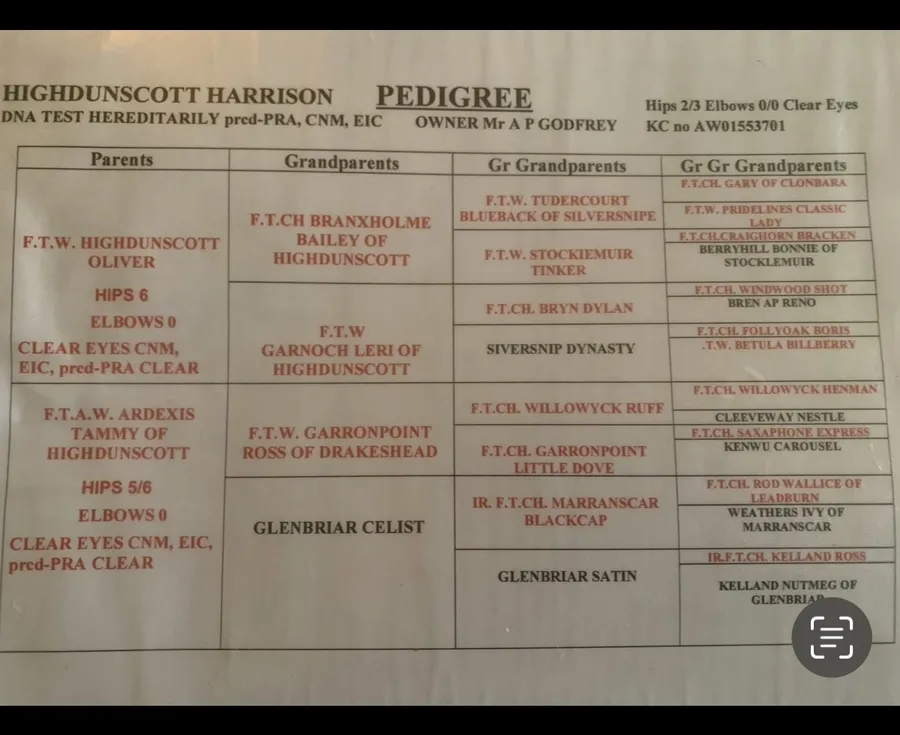 HIGHDUNSCOTT HARRISON
PEDIGREE
Hips 2/3 Elbows 0/0 Clear Eyes
DNA TEST HEREDITARILY prcd-PRA, CNM, EIC
OWNER Mr A P GODFREY
KC no AW01553701
Parents
Grandparents
Gr Grandparents
Gr Gr Grandparents
F.T.W. HIGHDUNSCOTT
OLIVER
HIPS 6
ELBOWS 0
CLEAR EYES CNM,
EIC, prcd-PRA CLEAR
F.T.A.W. ARDEXIS
TAMMY OF
HIGHDUNSCOTT
HIPS 5/6
ELBOWS 0
CLEAR EYES CNM, EIC,
prcd-PRA CLEAR
F.T.CH BRANXHOLME
BAILEY OF
HIGHDUNSCOTT
F.T.W
GARNOCH LERI OF
HIGHDUNSCOTT
F.T.W. GARRONPOINT
ROSS OF DRAKESHEAD
GLENBRIAR CELIST
F.T.W. TUDERCOURT
BLUEBACK OF SILVERSNIPE
F.T.W. STOCKIEMUIR
TINKER
F.T.CH. BRYN DYLAN
SIVERSNIP DYNASTY
F.T.CH. WILLOWYCK RUFF
F.T.CH. GARRONPOINT
LITTLE DOVE
IR. F.T.CH. MARRANSCAR
BLACKCAP
GLENBRIAR SATIN
F.T.CH. GARY OF CLONBARA
F.T.W. PRIDELINES CLASSIC
LADY
F.T.CH.CRAIGHORN BRACKEN
BERRYHILL BONNIE OF
STOCKLEMUIR
F.T.CH. WINDWOOD SHOT
BREN AP RENO
F.T.CH. FOLLYOAK BORIS
.T.W. BETULA BILLBERRY
F.T.CH. WILLOWYCK HENMAN
CLEEVEWAY NESTLE
F.T.CH. SAXAPHONE EXPRESS
KENWU CAROUSEL
F.T.CH. ROD WALLICE OF
LEADBURN
WEATHERS IVY OF
MARRANSCAR
IR.F.T.CH. KELLAND ROSS
KELLAND NUTMEG OF
GLENBRIAR